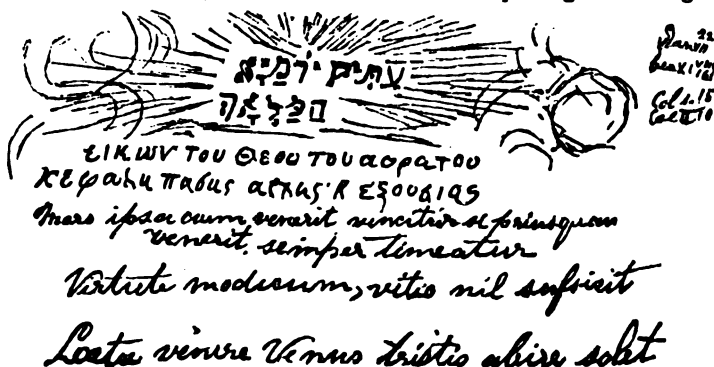 עַתִּיק יוֹמַיָּא
Dan VII 22
Col 1. 15
Col II 10
εικων του Θεου του αορατου
κεφαλη πασης αρχης κ εξουσιας
Mors ipsa cum venerit vincitur priusquam
venerit, semper timeatur
Virtute modicum, vitio nil sufficit
Laeta venire Venus tristis abire solet